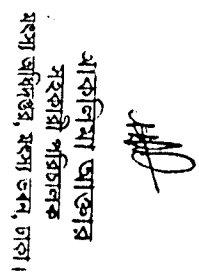 মাকসিমা আক্তার
সহকারী পরিচালক
মৎস্য অধিদপ্তর, মৎস্য ভবন, ঢাকা।